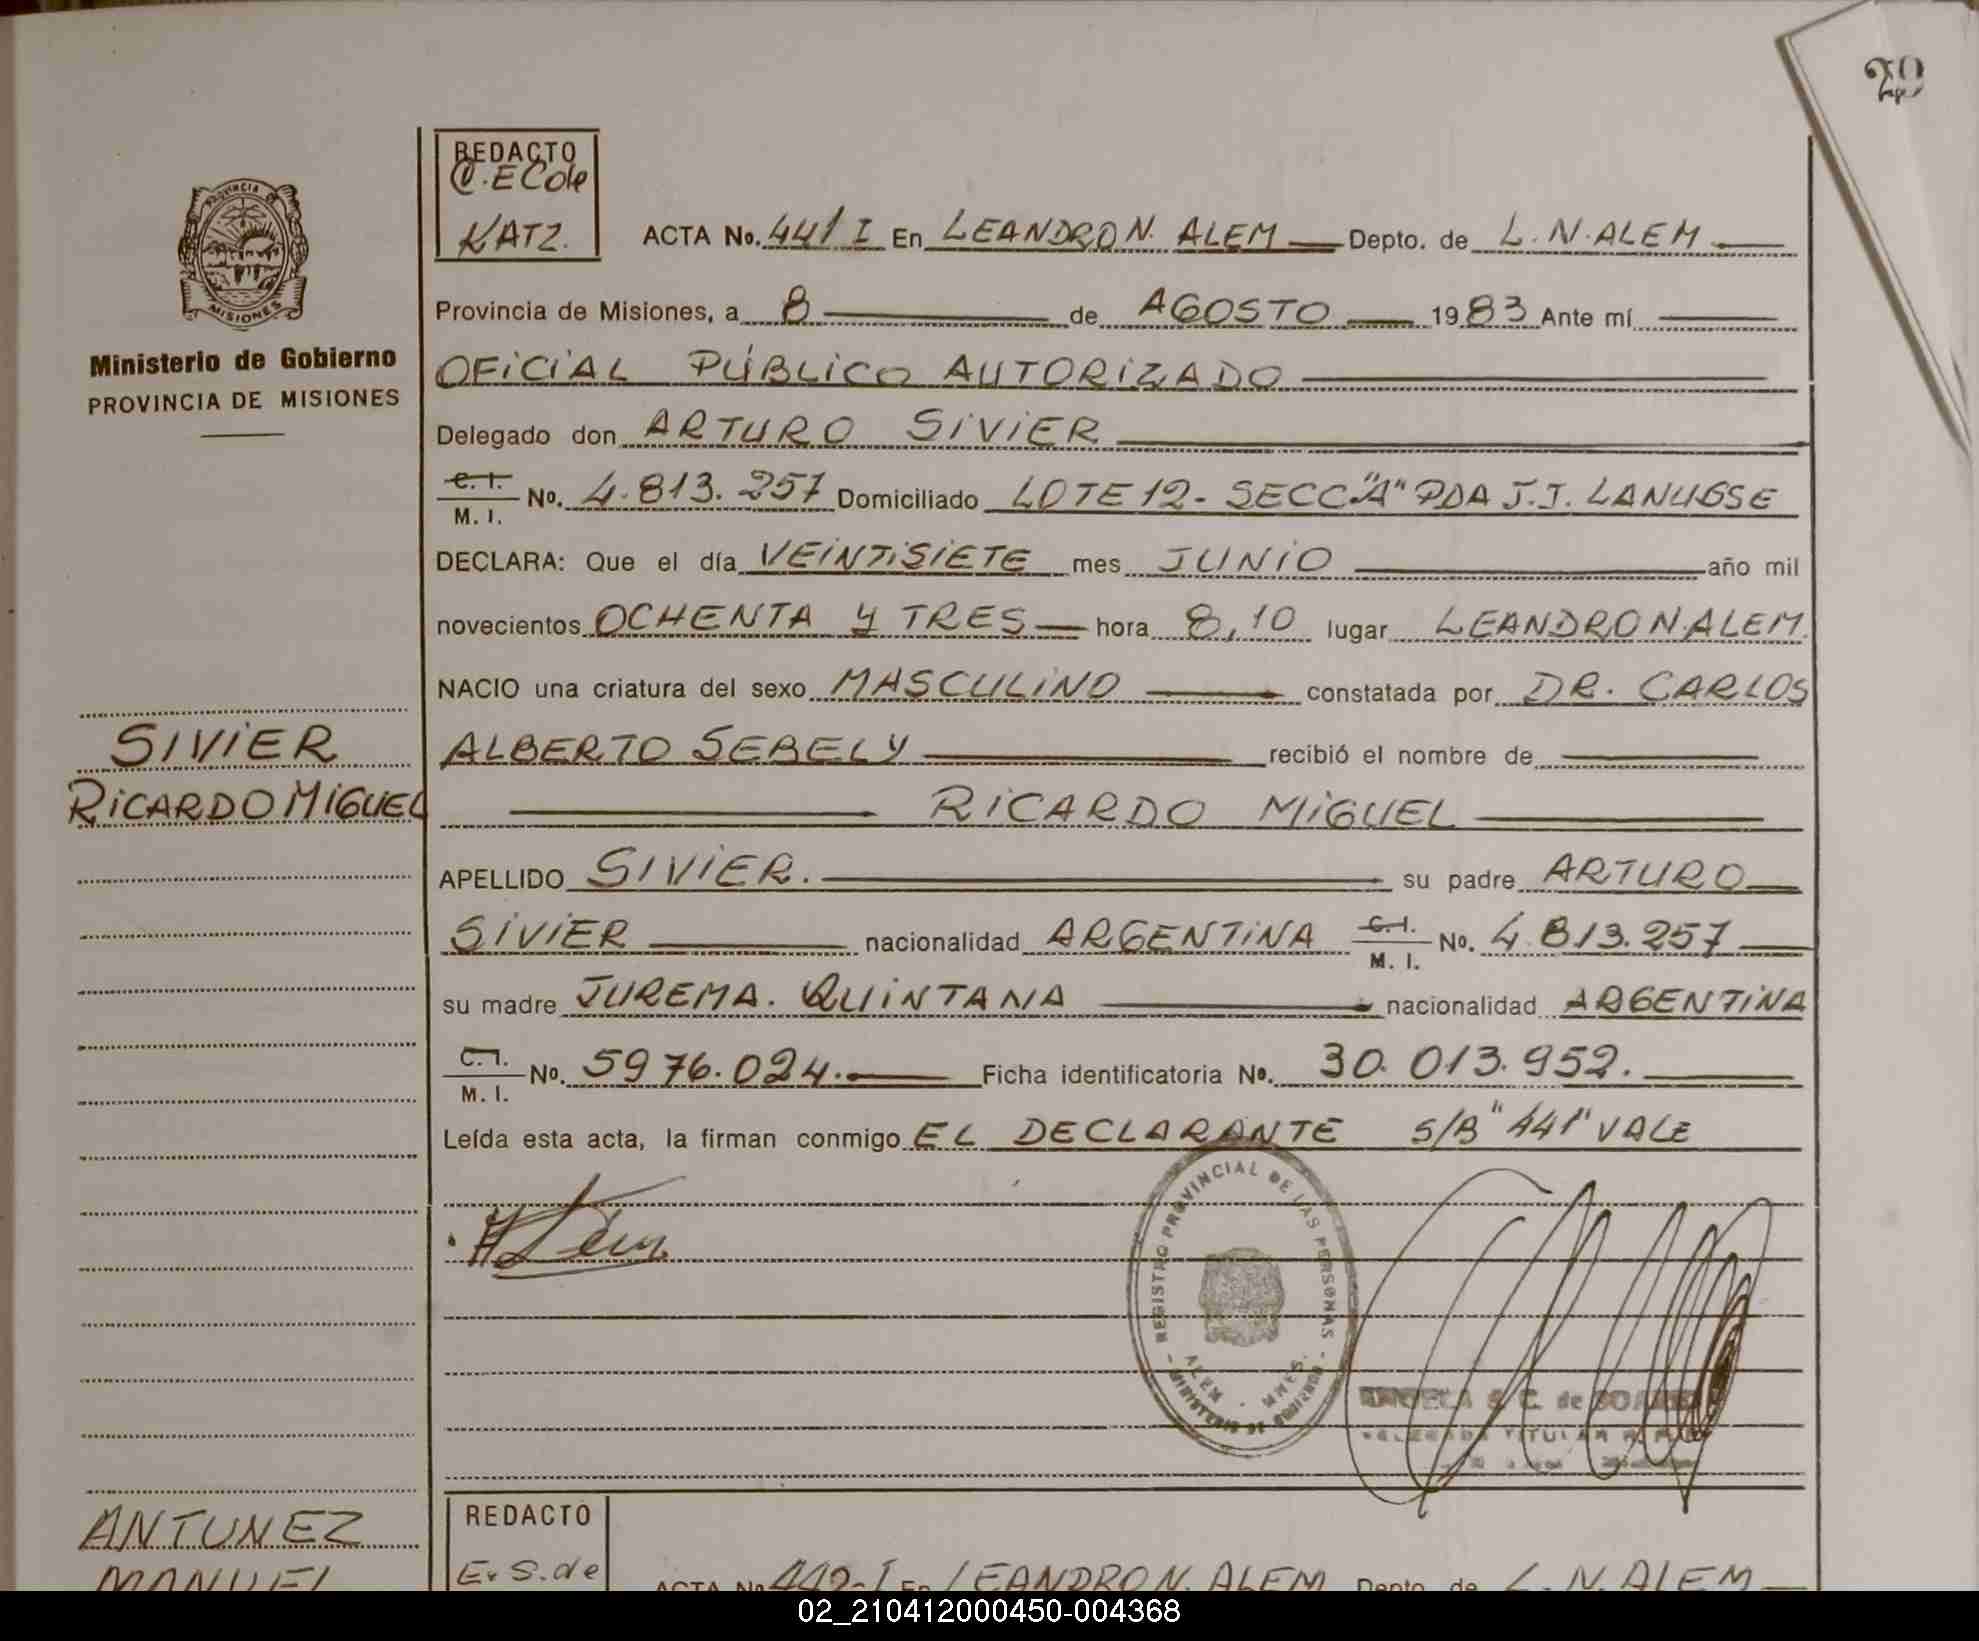 29
REDACTO
KATZ.
ACTA No. 441 I En LEANDRO N. ALEM Depto. de L. N. ALEM
PROVINCIA
MISIONES
Provincia de Misiones, a 8 de AGOSTO 1983 Ante mí
Ministerio de Gobierno
PROVINCIA DE MISIONES
OFICIAL PÚBLICO AUTORIZADO
Delegado don ARTURO SIVIER
C. I. M. I. No. 4.813.257 Domiciliado LOTE 12 - SECC "A" PDA J.J. LANUSSE
DECLARA: Que el día VEINTISIETE mes JUNIO año mil
novecientos OCHENTA Y TRES hora 8,10 lugar LEANDRO N. ALEM.
NACIO una criatura del sexo MASCULINO constatada por DR. CARLOS
ALBERTO SEBELY recibió el nombre de
SIVIER
RICARDO MIGUEL
RICARDO MIGUEL
APELLIDO SIVIER. su padre ARTURO
SIVIER nacionalidad ARGENTINA C. I. M. I. No. 4.813.257
su madre JUREMA. QUINTANA nacionalidad ARGENTINA
C. I. M. I. No. 5976.024. Ficha identificatoria No. 30.013.952.
Leída esta acta, la firman conmigo EL DECLARANTE S/B "441" VALE
REGISTRO PROVINCIAL DE LAS PERSONAS
ALEM - MNES.
MINISTERIO DE GOBIERNO
S. C. de
TITULAR
ANTUNEZ
MANUEL
REDACTO
E. S. de
ACTA No 442-I En LEANDRO N. ALEM Depto. de L. N. ALEM
02_210412000450-004368